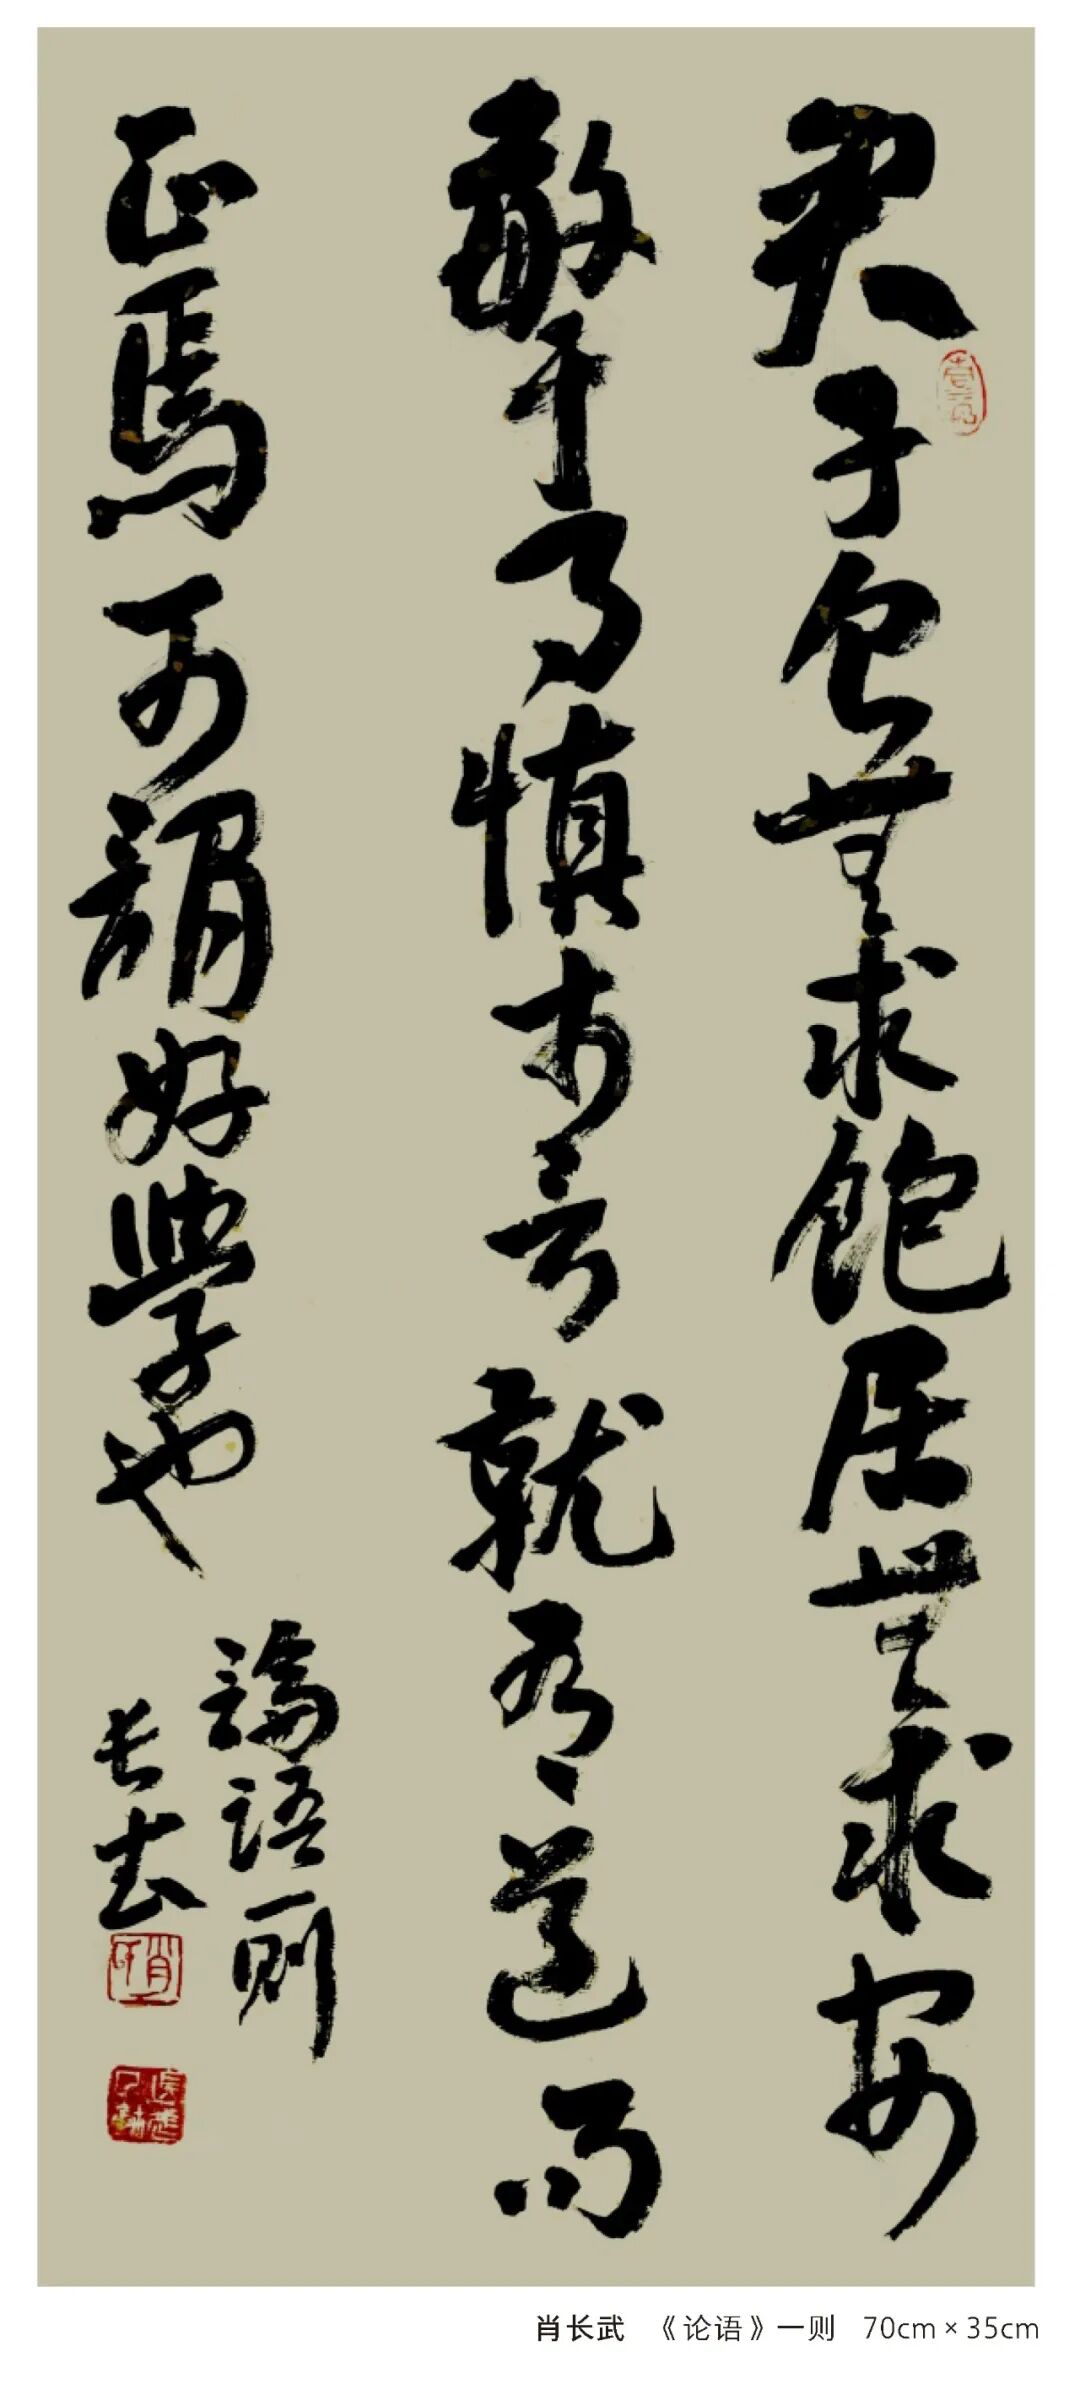 君子食無求飽居無求安
敏于事慎於言就有道而
正焉可謂好學也
論語一則
長武
肖长武 《论语》一则 70cm×35cm